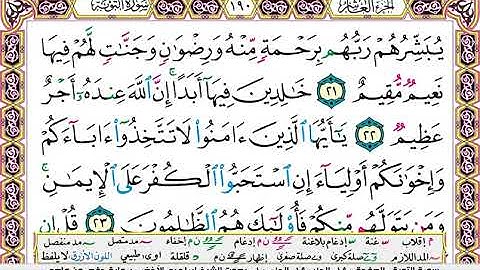 الجزء العاشر ١٩٠ سورة التوبة
يُبَشِّرُهُمْ رَبُّهُم بِرَحْمَةٍ مِّنْهُ وَرِضْوَٰنٍ وَجَنَّٰتٍ لَّهُمْ فِيهَا
نَعِيمٌ مُّقِيمٌ ٢١ خَٰلِدِينَ فِيهَآ أَبَدًا إِنَّ ٱللَّهَ عِندَهُۥٓ أَجْرٌ
عَظِيمٌ ٢٢ يَٰٓأَيُّهَا ٱلَّذِينَ ءَامَنُوا۟ لَا تَتَّخِذُوٓا۟ ءَابَآءَكُمْ
وَإِخْوَٰنَكُمْ أَوْلِيَآءَ إِنِ ٱسْتَحَبُّوا۟ ٱلْكُفْرَ عَلَى ٱلْإِيمَٰنِ
وَمَن يَتَوَلَّهُم مِّنكُمْ فَأُو۟لَٰٓئِكَ هُمُ ٱلظَّٰلِمُونَ ٢٣ قُلْ إِن
م إقلاب غنة إدغام بلاغنة ن م إدغام ن م إخفاء مد متصل مد منفصل
المد اللازم صلة صغرى قلقلة مد أوي، طبيعي اللون الأزرق لا يلفظ